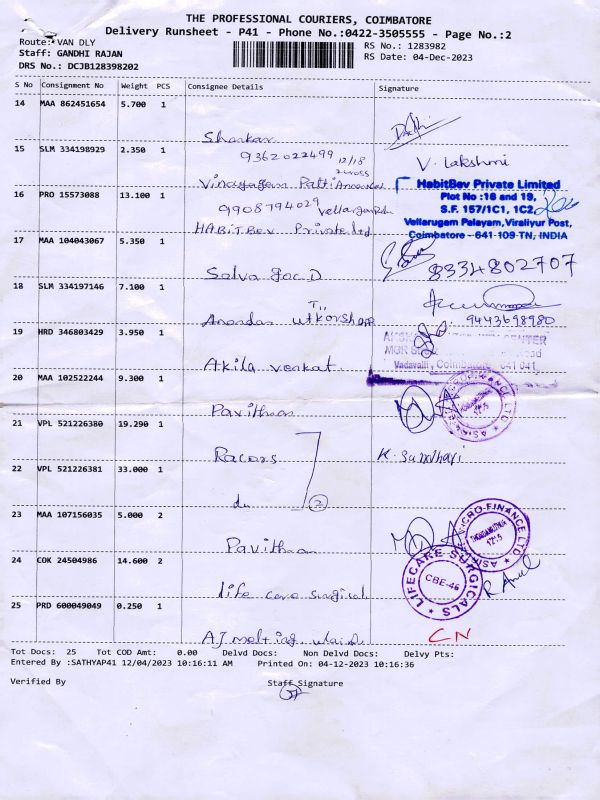 THE PROFESSIONAL COURIERS, COIMBATORE
Delivery Runsheet - P41 - Phone No.:0422-3505555 - Page No.:2
Route: VAN DLY
RS No.: 1283982
Staff: GANDHI RAJAN
RS Date: 04-Dec-2023
DRS No.: DCJB128398202
S No Consignment No Weight PCS Consignee Details Signature
14 MAA 862451654 5.700 1
Shankar
9362022499 12/18
15 SLM 334198929 2.350 1
V. Lakshmi
Vinayagara
16 PRO 15573088 13.100 1
9908794029
HABITBEV Private Ltd
HabitBev Private Limited
Plot No :18 and 19,
S.F. 157/1C1, 1C2,
Vellarugam Palayam, Viraliyur Post,
Coimbatore - 641 109 TN, INDIA
17 MAA 104043067 5.350 1
8334802707
18 SLM 334197146 7.100 1
9443698980
19 HRD 346803429 3.950 1
Akila venkat
CENTER
Vadavalli, Coimbatore 641 041
20 MAA 102522244 9.300 1
21 VPL 521226380 19.290 1
Racors
K. Sundhari
22 VPL 521226381 33.000 1
do 2
23 MAA 107156035 5.000 2
MICRO-FINANCE LTD
24 COK 24504986 14.600 2
life care surgical
LIFECARE SURGICALS
CBE-46
25 PRD 600049049 0.250 1
CN
Tot Docs: 25 Tot COD Amt: 0.00 Delvd Docs: Non Delvd Docs: Delvy Pts:
Entered By :SATHYAP41 12/04/2023 10:16:11 AM Printed On: 04-12-2023 10:16:36
Verified By Staff Signature